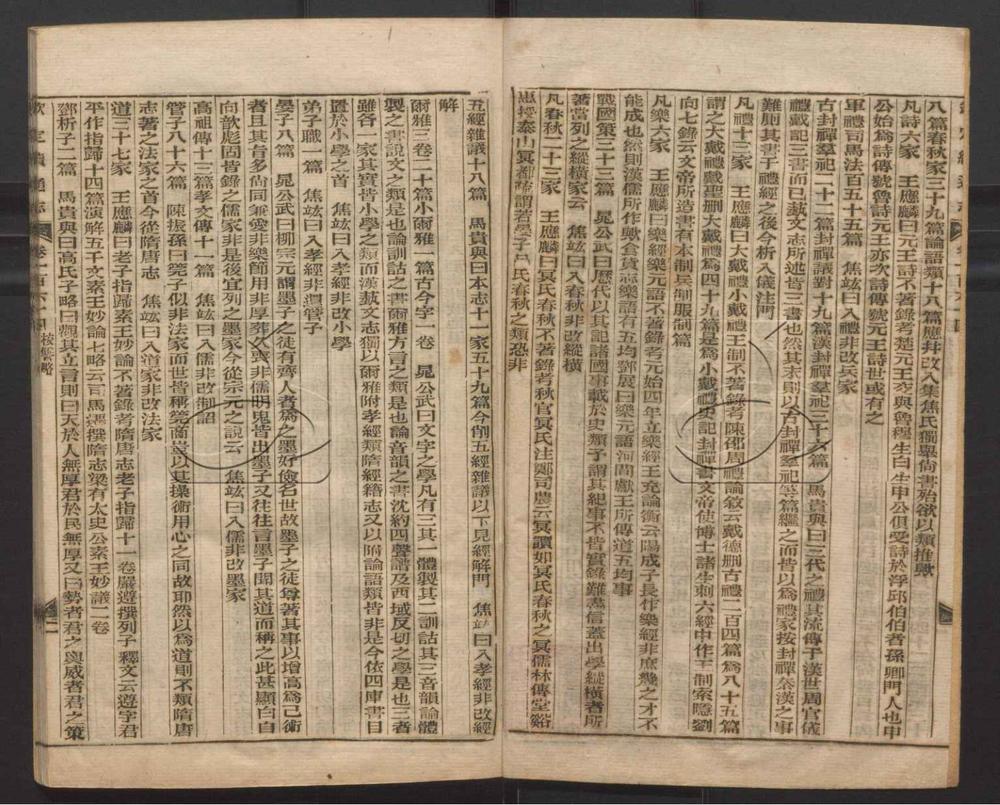 八篇春秋家三十九篇論語類十八篇應并改入集焦氏獨舉尙書殆欲以類推歟
凡詩六家　王應麟曰元王詩不著錄考楚元王交與魯穆生白生申公俱受詩於浮邱伯伯者孫卿門人也申
公始爲詩傳號魯詩元王亦次詩傳號元王詩世或有之
軍禮司馬法百五十五篇　焦竑曰入禮非改兵家
古封禪羣祀二十二篇封禪議對十九篇漢封禪羣祀三十六篇　馬貴與曰三代之禮其流傳于漢世周官儀
禮戴記三書而已藝文志所述皆三書也然其末則以古封禪羣祀等篇繼之而皆以爲禮家按封禪秦漢之事
難廁其書于禮經之後今析入儀注門
凡禮十三家　王應麟曰大戴禮小戴禮王制不著錄考陳邵周禮論敘云戴德刪古禮二百四篇爲八十五篇
謂之大戴禮戴聖刪大戴禮爲四十九篇是爲小戴禮史記封禪書文帝使博士諸生刺六經中作王制索隱劉
向七錄云文帝所造書有本制兵制服制篇
凡樂六家　王應麟曰樂經樂元語不著錄考元始四年立樂經王充論衡云陽成子長作樂經非庶幾之才不
能成也然則漢儒所作歟食貨志樂語有五均鄧展曰樂元語河間獻王所傳道五均事
戰國策三十三篇　晁公武曰歷代以其記諸國事載於史類予謂其紀事不皆實錄難盡信蓋出學縱橫者所
著當列之縱橫家云　焦竑曰入春秋非改縱橫
凡春秋二十三家　王應麟曰冥氏春秋不著錄考秋官冥氏注鄭司農云冥讀如冥氏春秋之冥儒林傳堂谿
惠授泰山冥都
五經雜議十八篇　馬貴與曰本志十一家五十九篇今削五經雜議以下見經解門　焦竑曰入孝經非改經
解
爾雅三卷二十篇小爾雅一篇古今字一卷　晁公武曰文字之學凡有三其一體製其二訓詁其三音韻論體
製之書說文之類是也論訓詁之書爾雅方言之類是也論音韻之書沈約四聲譜及西域反切之學是也三者
雖各一家其實皆小學之類而漢藝文志獨以爾雅附孝經類隋經籍志又以附論語類皆非是今依四庫書目
置於小學之首　焦竑曰入孝經非改小學
弟子職一篇　焦竑曰入孝經非還管子
晏子八篇　晁公武曰柳宗元謂墨子之徒有齊人者爲之墨好儉名世故墨子之徒尊著其事以增高爲己術
者且其旨多尙同兼愛非樂節用非厚葬久喪非儒明鬼皆出墨子又往往言墨子聞其道而稱之此甚顯白自
向歆彪固皆錄之儒家非是後宜列之墨家今從宗元之說云　焦竑曰入儒非改墨家
高祖傳十三篇孝文傳十一篇　焦竑曰入儒非改制詔
管子八十六篇　陳振孫曰筦子似非法家而世皆稱筦商豈以其操術用心之同故耶然以爲道則不類隋唐
志著之法家之首今從隋唐志　焦竑曰入道家非改法家
道三十七家　王應麟曰老子指歸素王妙論不著錄考隋唐志老子指歸十一卷嚴遵撰列子釋文云遵字君
平作指歸十四篇演解五千文素王妙論七略云司馬遷撰隋志梁有太史公素王妙議二卷
鄧析子二篇　馬貴與曰高氏子略曰觀其立言則曰天於人無厚君於民無厚又曰勢者君之輿威者君之策
欽定續通志
校讎略